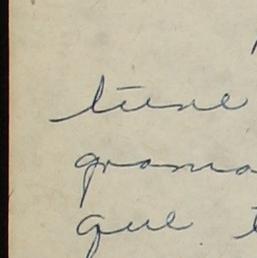 tiene
grama
que t